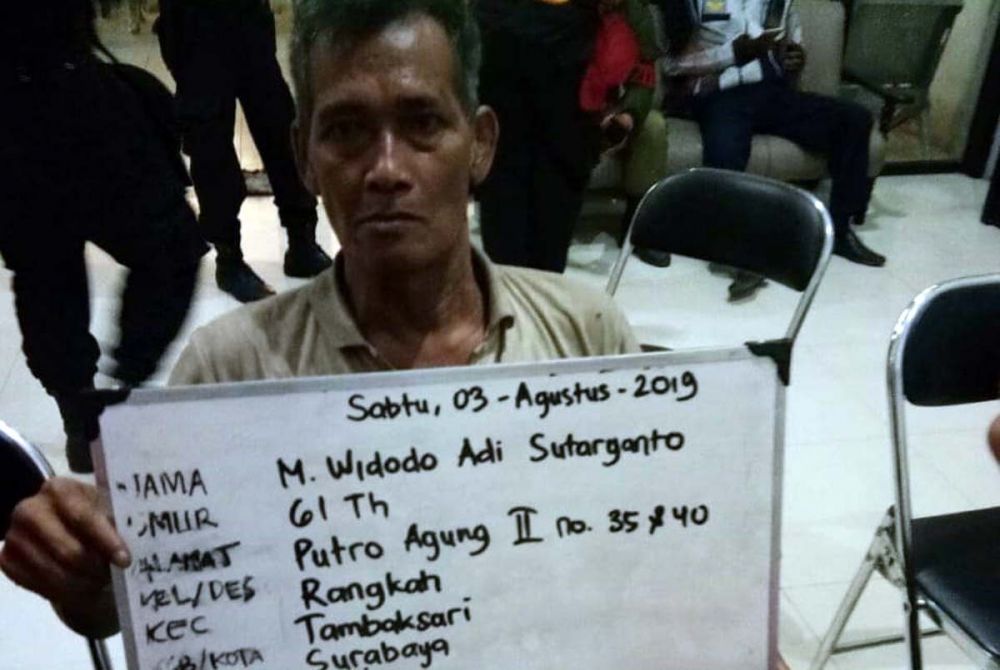 Sabtu, 03-Agustus-2019
NAMA M. Widodo Adi Sutarganto
UMUR 61 Th
ALAMAT Putro Agung II no. 35 / 40
KEL/DES Rangkah
KEC Tambaksari
KAB/KOTA Surabaya